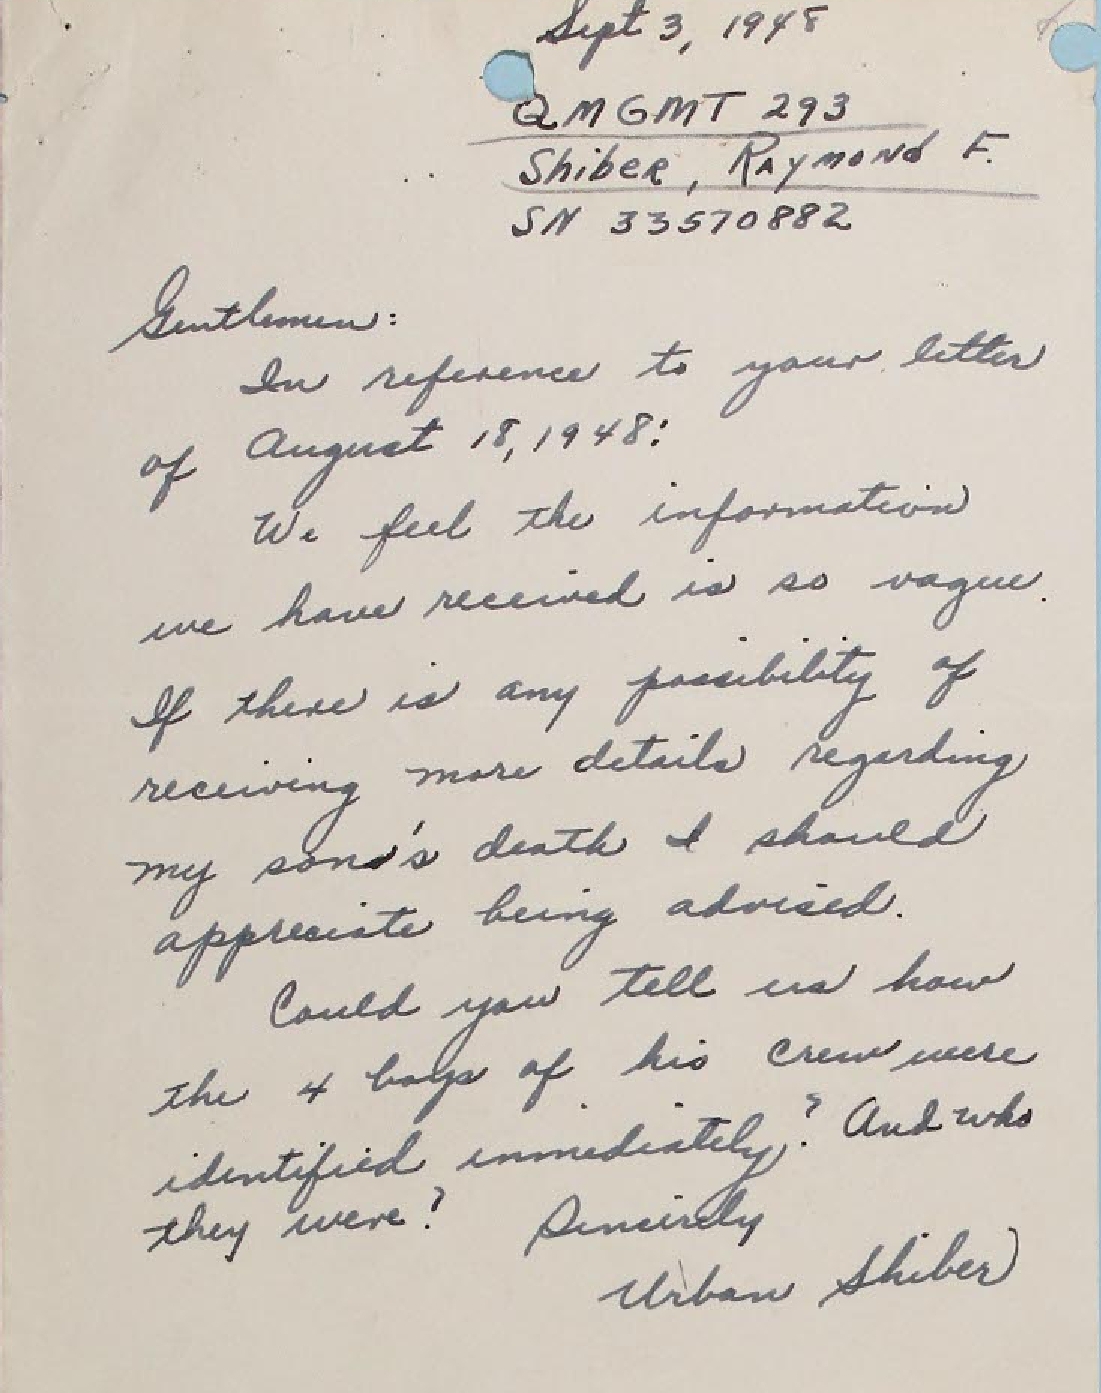 Sept 3, 1948
QMGMT 293
Shiber, Raymond F.
SN 33570882
Gentlemen:
In reference to your letter
of August 18, 1948:
We feel the information
we have received is so vague.
If there is any possibility of
receiving more details regarding
my son's death I should
appreciate being advised.
Could you tell us how
the 4 boys of his crew were
identified immediately? And who
they were? Sincerely
Urban Shiber